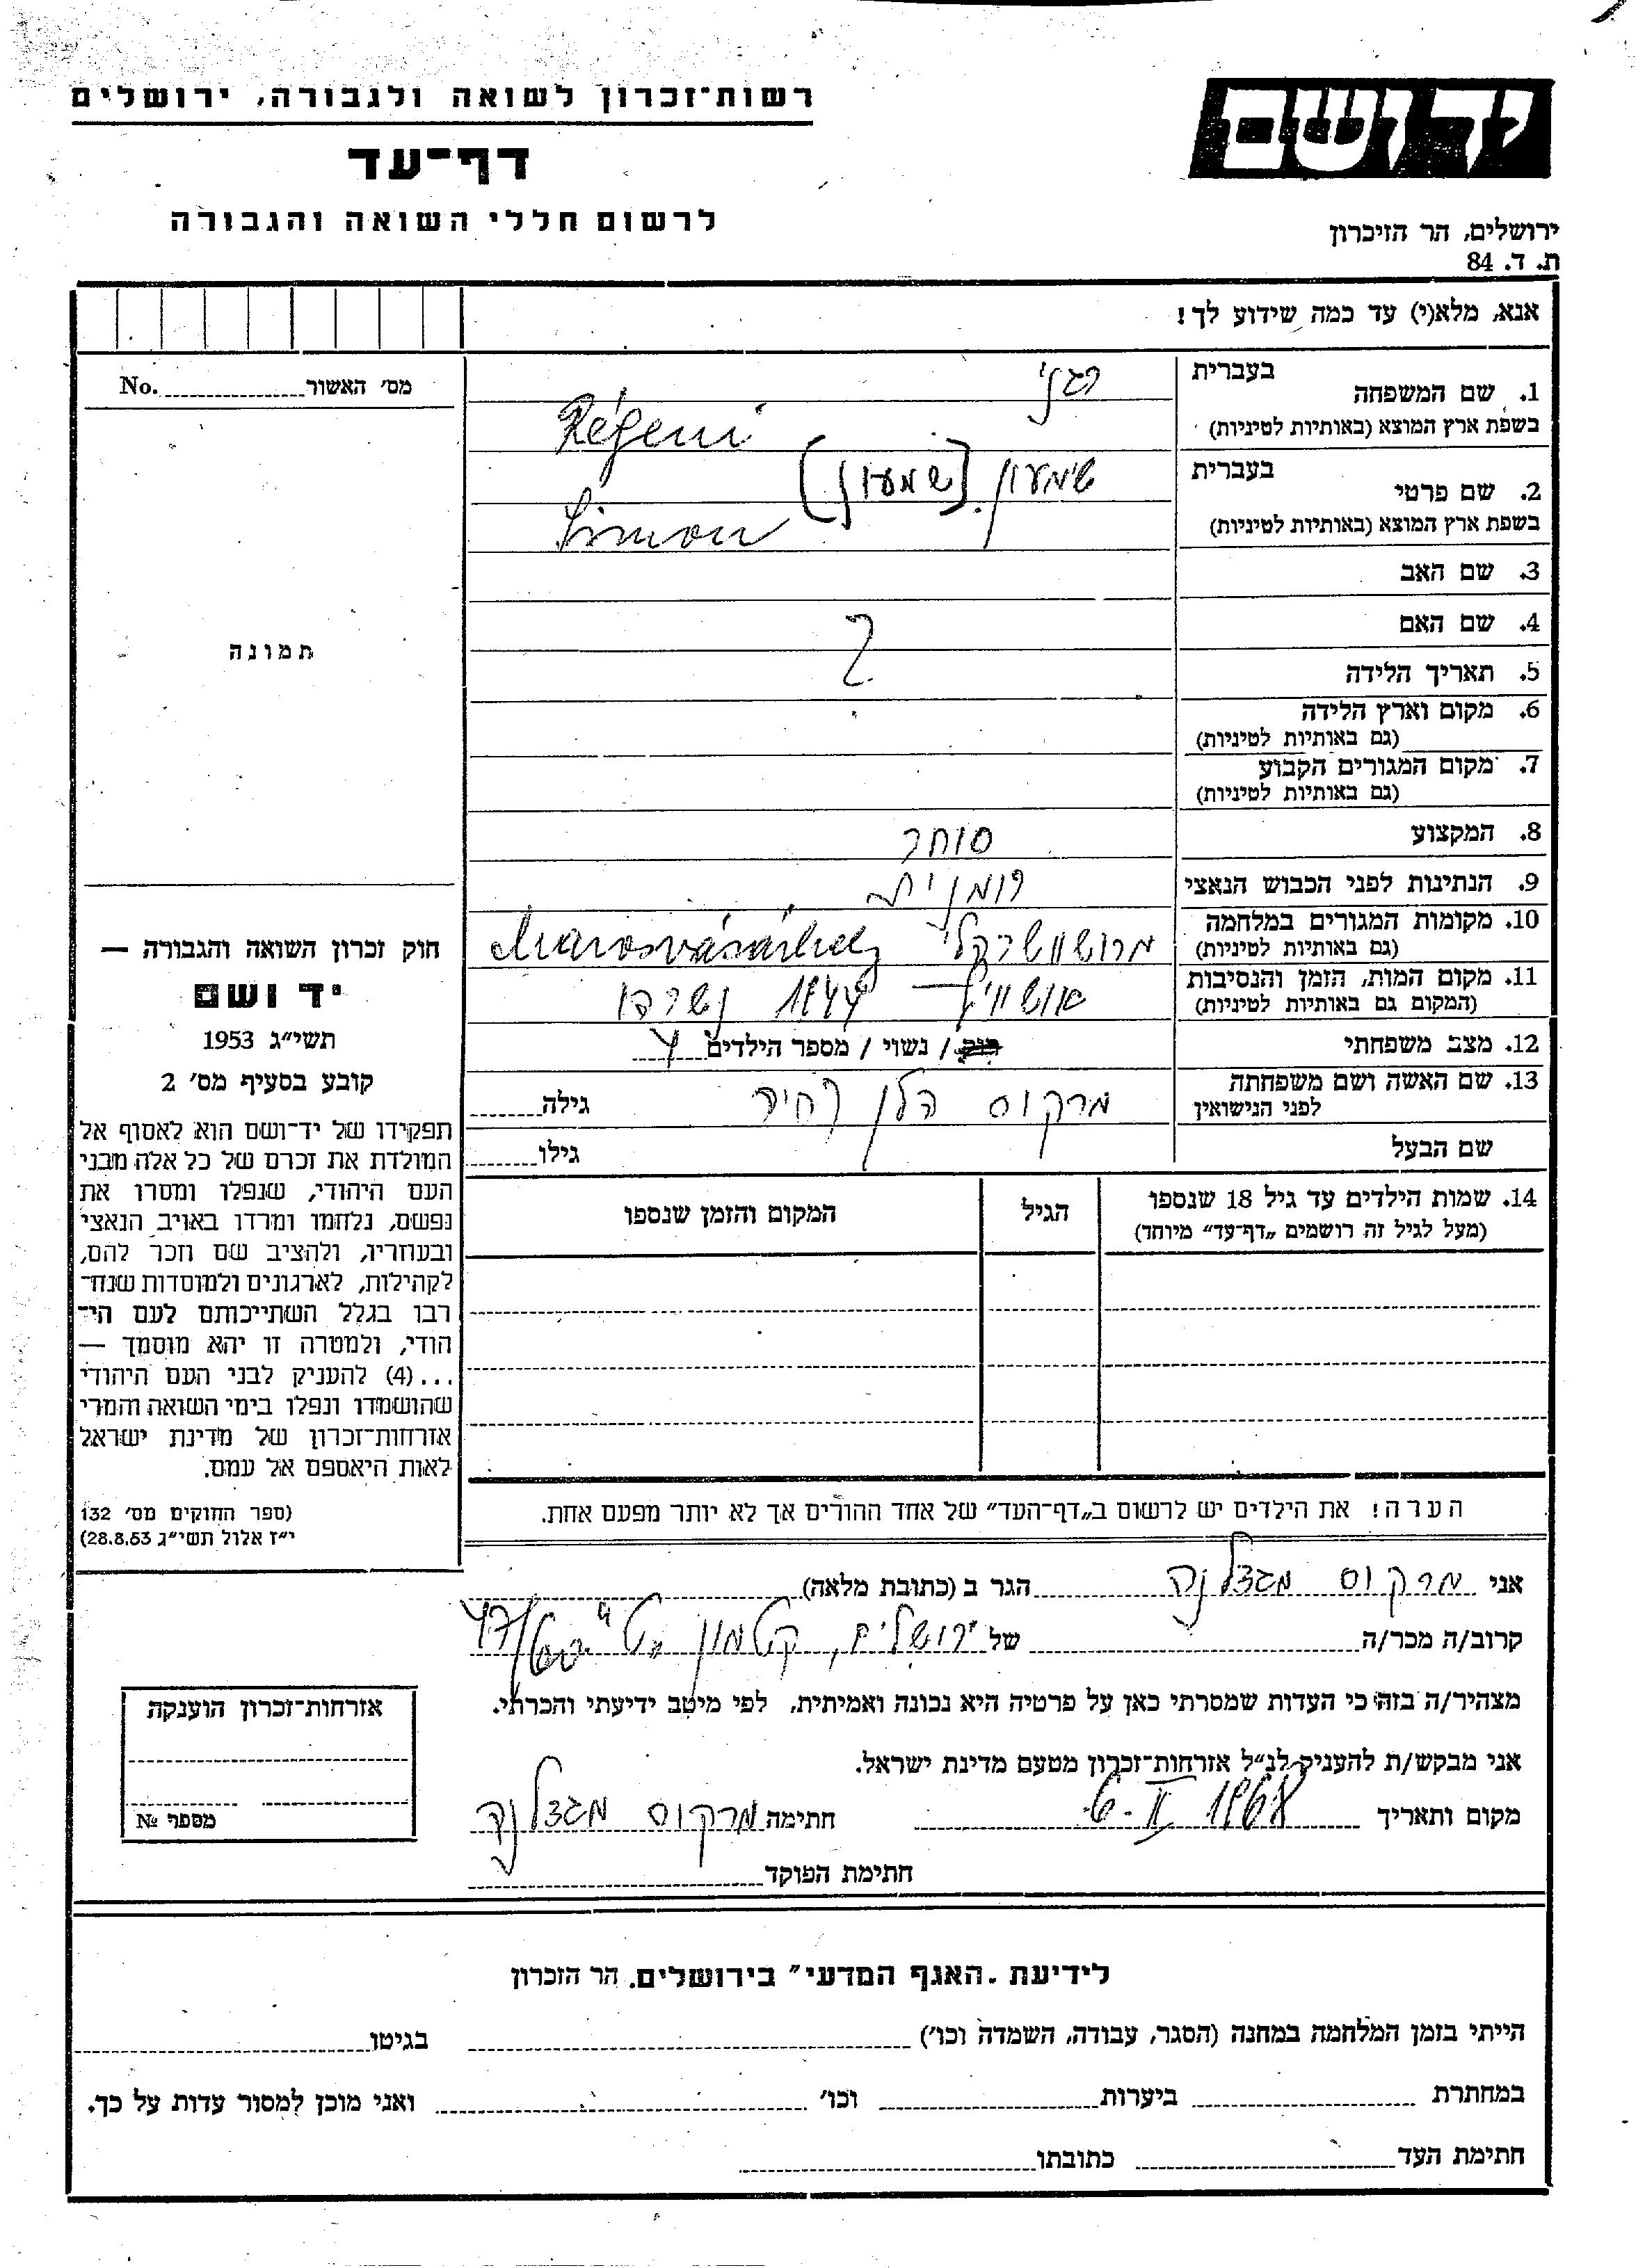 רשות־זכרון לשואה ולגבורה, ירושלים
דף־עד
לרשום חללי השואה והגבורה
יד ושם
ירושלים, הר הזיכרון
ת. ד. 84
אנא, מלא(י) עד כמה שידוע לך!
מס׳ האשור No.
1. שם המשפחה בעברית רגני
בשפת ארץ המוצא (באותיות לטיניות) Régeni
2. שם פרטי בעברית שימעון (שמעון)
בשפת ארץ המוצא (באותיות לטיניות) Simon
3. שם האב
4. שם האם
5. תאריך הלידה
6. מקום וארץ הלידה
(גם באותיות לטיניות)
7. מקום המגורים הקבוע
(גם באותיות לטיניות)
8. המקצוע סוחר
9. הנתינות לפני הכבוש הנאצי רומנית
10. מקומות המגורים במלחמה
(גם באותיות לטיניות) מרושוושרהלי Marosvásárhely
11. מקום המות, הזמן והנסיבות
(המקום גם באותיות לטיניות) אושוויץ – 1944 נשרפו
12. מצב משפחתי / נשוי / מספר הילדים 4
13. שם האשה ושם משפחתה
לפני הנישואין מרקוס הלן גילה
שם הבעל גילו
14. שמות הילדים עד גיל 18 שנספו
(מעל לגיל זה רושמים „דף־עד״ מיוחד)
הגיל
המקום והזמן שנספו
תמונה
חוק זכרון השואה והגבורה —
יד ושם
תשי״ג 1953
קובע בסעיף מס׳ 2
תפקידו של יד־ושם הוא לאסוף אל
המולדת את זכרם של כל אלה מבני
העם היהודי, שנפלו ומסרו את
נפשם, נלחמו ומרדו באויב הנאצי
ובעוזריו, ולהציב שם וזכר להם,
לקהילות, לארגונים ולמוסדות שנח־
רבו בגלל השתייכותם לעם הי־
הודי, ולמטרה זו יהא מוסמך —
...(4) להעניק לבני העם היהודי
שהושמדו ונפלו בימי השואה והמרי
אזרחות־זכרון של מדינת ישראל
לאות היאספם אל עמם.
(ספר החוקים מס׳ 132
י״ז אלול תשי״ג 28.8.53)
הערה! את הילדים יש לרשום ב„דף־העד״ של אחד ההורים אך לא יותר מפעם אחת.
אני מרקוס מגדלנה הגר ב (כתובת מלאה)
קרוב/ה מכר/ה של ירושלים, קטמון ט׳
מצהיר/ה בזה כי העדות שמסרתי כאן על פרטיה היא נכונה ואמיתית, לפי מיטב ידיעתי והכרתי.
אני מבקש/ת להעניק לנ״ל אזרחות־זכרון מטעם מדינת ישראל.
מקום ותאריך 6-II 1968 חתימה מרקוס מגדלנה
חתימת הפוקד
אזרחות־זכרון הוענקה
מספר №
לידיעת „האגף המדעי״ בירושלים, הר הזכרון
הייתי בזמן המלחמה במחנה (הסגר, עבודה, השמדה וכו׳) בגיטו
במחתרת ביערות וכו׳ ואני מוכן למסור עדות על כך.
חתימת העד כתובתו